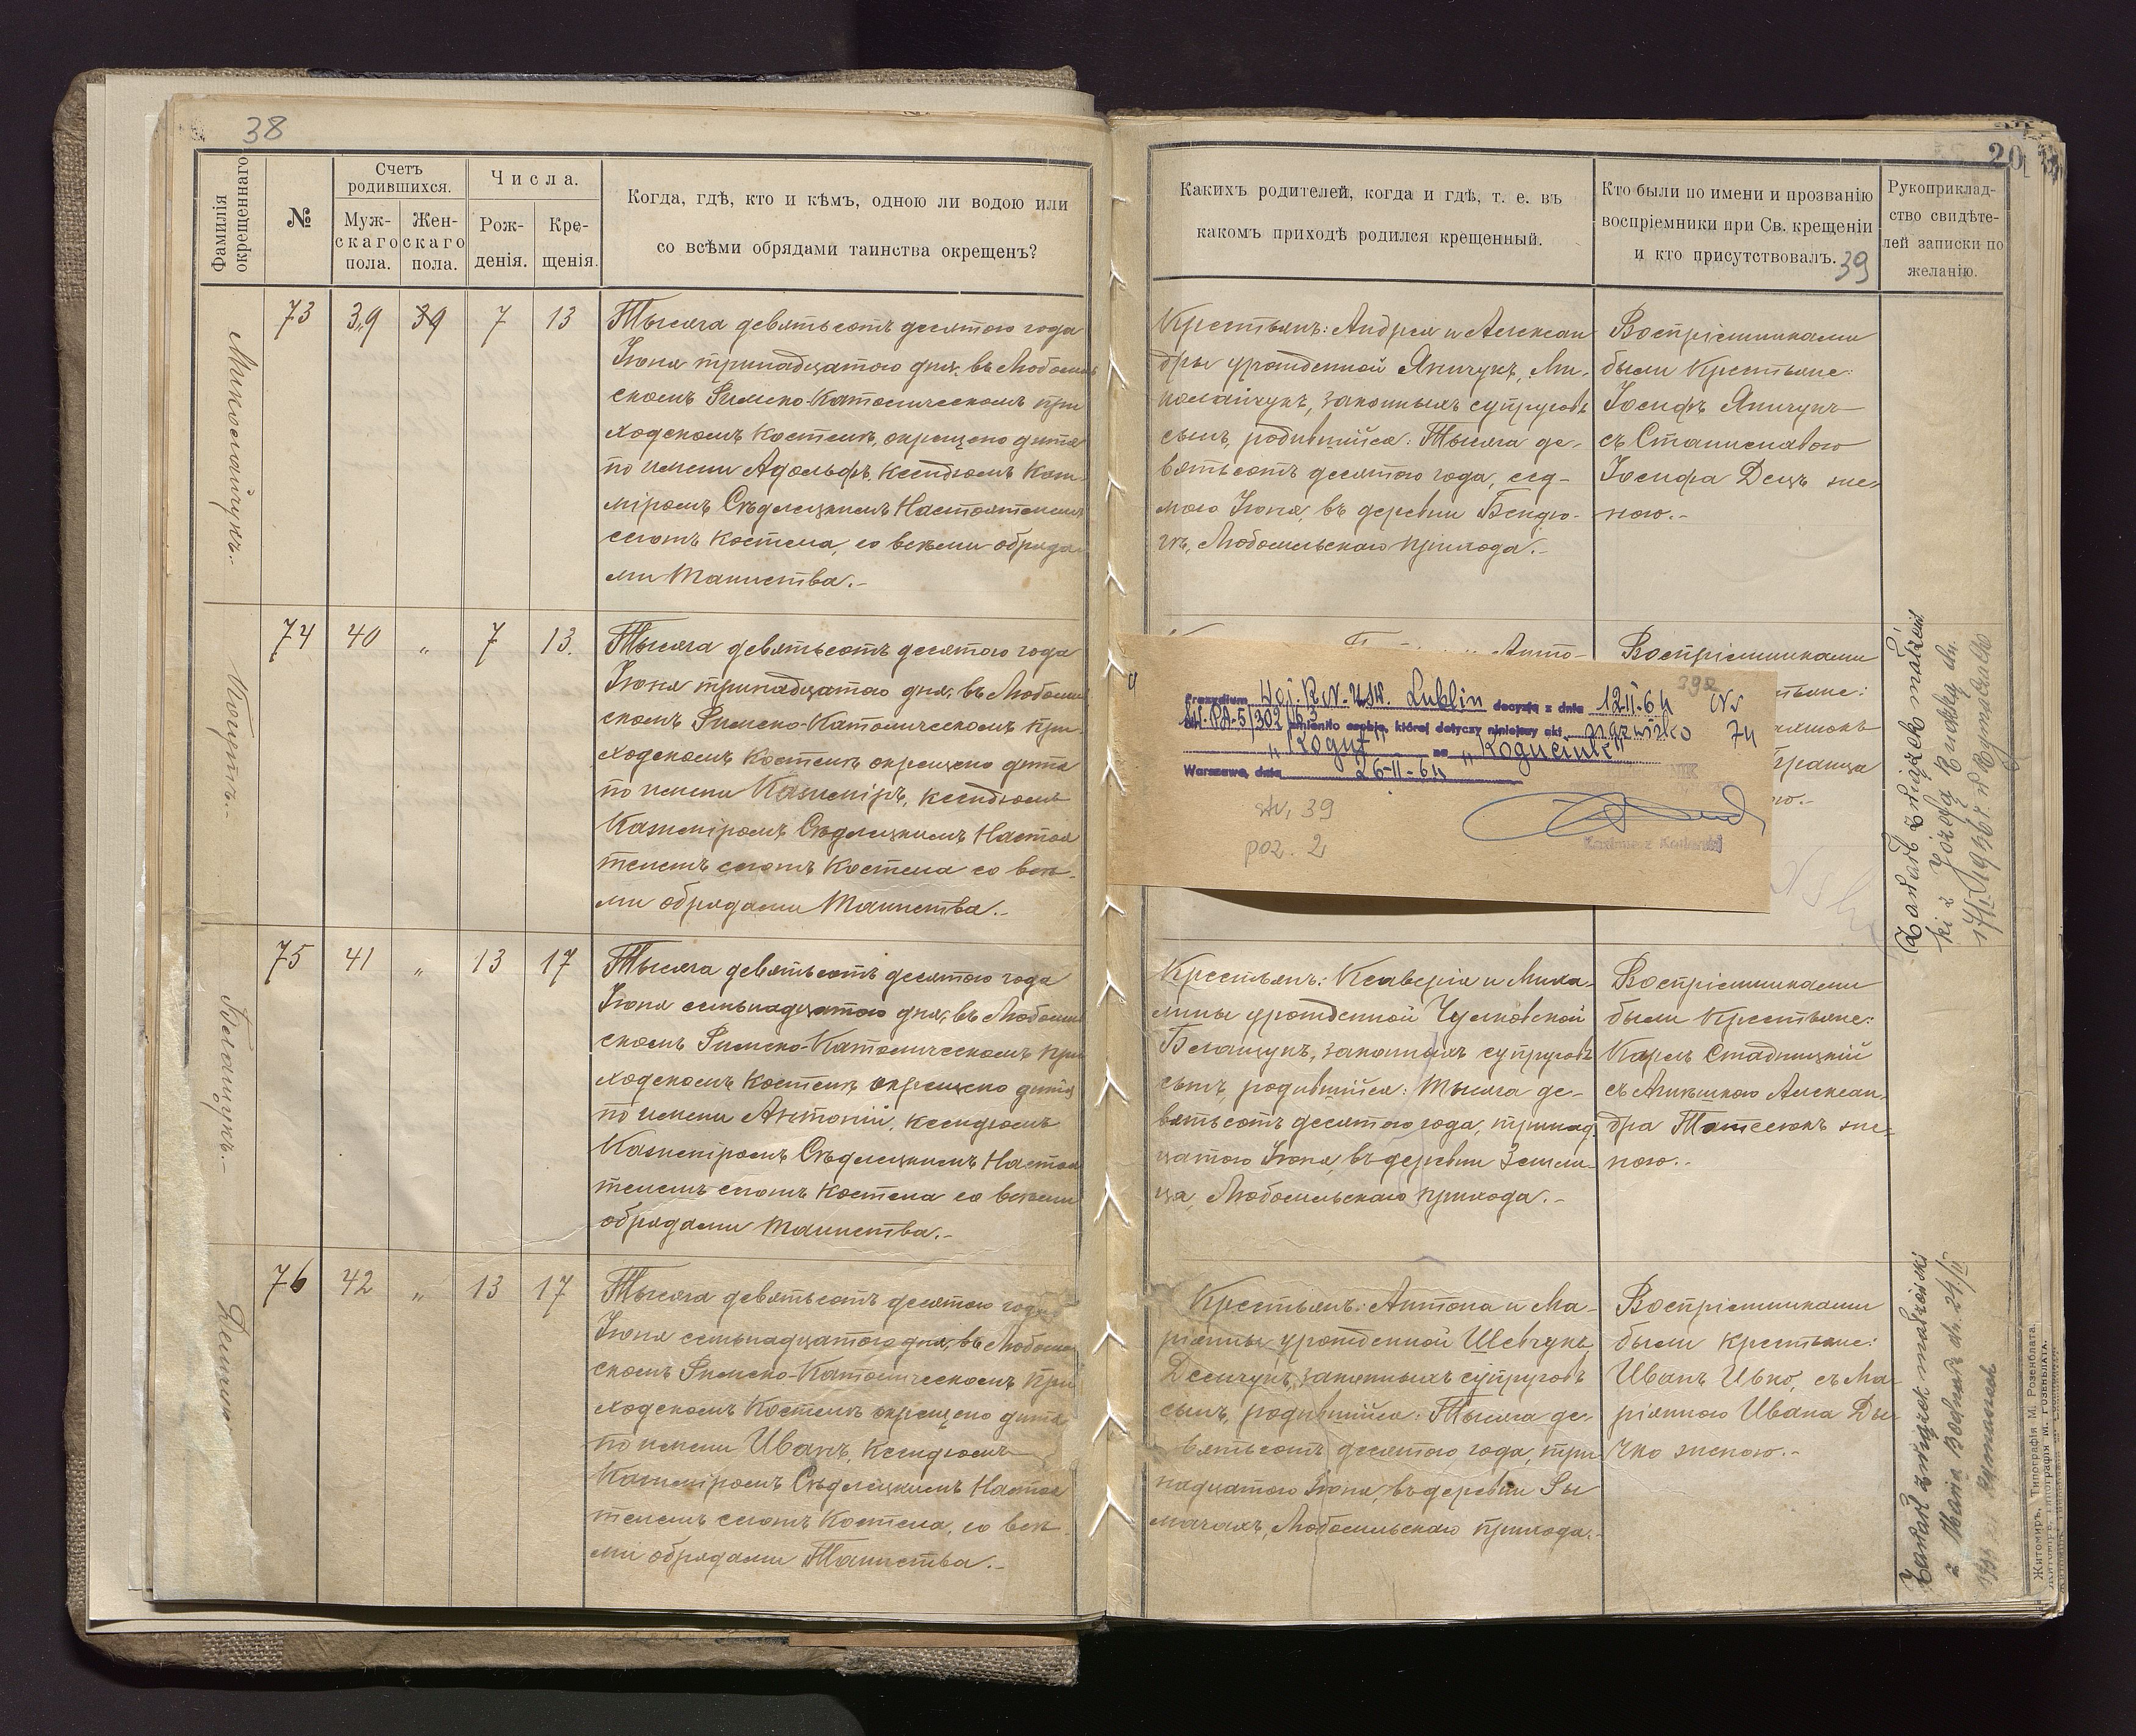 38
Фамилія окрещеннаго
№
Счетъ родившихся.
Муж-
скаго
пола.
Жен-
скаго
пола.
Числа.
Рож-
денія.
Кре-
щенія.
Когда, гдѣ, кто и кѣмъ, одною ли водою или
со всѣми обрядами таинства окрещенъ?
Миколайчукъ.-
73 39 39 7 13
Тысяча девятьсотъ десятого года
Іюня тринадцатого дня, въ Любомль
скомъ Римско-Католическомъ при
ходскомъ Костелѣ, окрещено дитя
по имени Адольфъ, Ксендзомъ Кази
міромъ Сѣдлецкимъ Настоятелемъ
сегожъ Костела, со всѣми обряда
ми Таинства.-
Когутъ.-
74 40 „ 7 13.
Тысяча девятьсотъ десятого года
Іюня тринадцатого дня, въ Любомль
скомъ Римско-Католическомъ при
ходскомъ Костелѣ окрещено дитя
по имени Казиміръ, Ксендзомъ
Казиміромъ Сѣдлецкимъ Настоя
телемъ сегожъ Костела со всѣ-
ми обрядами Таинства.-
Белащукъ.-
75 41 „ 13 17
Тысяча девятьсотъ десятого года
Іюня семьнадцатого дня, въ Любомль
скомъ Римско-Католическомъ при
ходскомъ Костелѣ, окрещено дитя
по имени Антоній, Ксендзомъ
Казиміромъ Сѣдлецкимъ Настоя
телемъ сегожъ Костела со всѣми
обрядами Таинства.-
76 42 „ 13 17
Тысяча девятьсотъ десятого года
Іюня семьнадцатого дня, въ Любомль
скомъ Римско-Католическомъ при
ходскомъ Костелѣ окрещено дитя
по имени Иванъ, Ксендзомъ
Казиміромъ Сѣдлецкимъ Настоя
телемъ сегожъ Костела, со всѣ-
ми обрядами Таинства.-
20
Какихъ родителей, когда и гдѣ, т. е. въ
какомъ приходѣ родился крещенный.
Кто были по имени и прозванію
воспріемники при Св. крещеніи
и кто присутствовалъ.
39
Рукоприклад-
ство свидѣте-
лей записки по
желанію.
Крестьянъ: Андрея и Алексан
дры урожденной Яничукъ, Ми-
колайчукъ, законныхъ супруговъ
сынъ, родившійся: Тысяча де-
вятьсотъ десятого года, сед-
мого Іюня, въ деревни Бендю-
гѣ, Любомльскаго прихода.-
Воспріемниками
были Крестьяне:
Іосифъ Яничукъ
съ Станиславою
Іосифа Децъ же-
ною.-
Анто-
Воспріемниками
Prezydium Woj. R.N. USW. Lublin decyzją z dnia 12.II.64 Nr
SW.PA-5/302/63 zmieniło osobie, której dotyczy niniejszy akt nazwisko 74
„Kogut" na „Koguciuk"
Warszawa, dnia 26-II-64
str. 39
poz. 2
Zawarł związek małżeń
ki z Józefą Rudką dn.
Крестьянъ: Ксаверія и Миха-
лины урожденной Чулковской
Белащукъ, законныхъ супруговъ
сынъ, родившійся: Тысяча де-
вятьсотъ десятого года, тринад-
цатого Іюня, въ деревни Земли-
ца, Любомльскаго прихода.-
Воспріемниками
были Крестьяне:
Карлъ Стадницкій
съ Агнѣшкою Алексан-
дра же-
ною.-
Крестьянъ: Антона и Ма-
ріянны урожденной Шевчукъ,
Демчукъ, законныхъ супруговъ
сынъ, родившійся: Тысяча де-
вятьсотъ десятого года, три
надцатого Іюня, въ деревни Ры
мачахъ, Любомльскаго прихода.-
Воспріемниками
были Крестьяне:
Иванъ Ивко, съ Ма-
ріянною Ивана Ды-
чко женою.-
Zawarł związek małżeński
z Marią Bodnar dn. 24/III
Житомиръ, Типографія М. Розенблата.